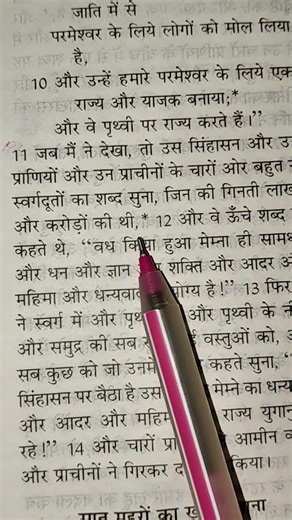 जाति में से
परमेश्वर के लिये लोगों को मोल लिया
है,
10 और उन्हें हमारे परमेश्वर के लिये एक
राज्य और याजक बनाया;*
और वे पृथ्वी पर राज्य करते हैं।”
11 जब मैं ने देखा, तो उस सिंहासन और उ
प्राणियों और उन प्राचीनों के चारों ओर बहुत
स्वर्गदूतों का शब्द सुना, जिन की गिनती लाख
और करोड़ों की थी,* 12 और वे ऊँचे शब्द
कहते थे, “वध हुआ मेम्ना ही सामर्थ
और धन और ज्ञान शक्ति और आदर औ
महिमा और धन्यवाद योग्य है!” 13 फिर
ने स्वर्ग में और और पृथ्वी के नी
और समुद्र की सब वस्तुओं को, अ
सब कुछ को जो उनमें कहते सुना, “
सिंहासन पर बैठा है उस मेम्ने का धन्य
और आदर और राज्य युगान
रहे!” 14 और चारों आमीन क
और प्राचीनों ने गिरकर किया।